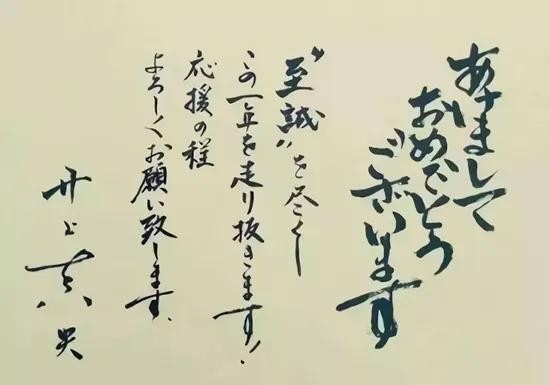 あけまして
おめでとう
ございます
“至誠”を尽くし
この一年を走り抜きます!
応援の程
よろしくお願い致します。
井上真央